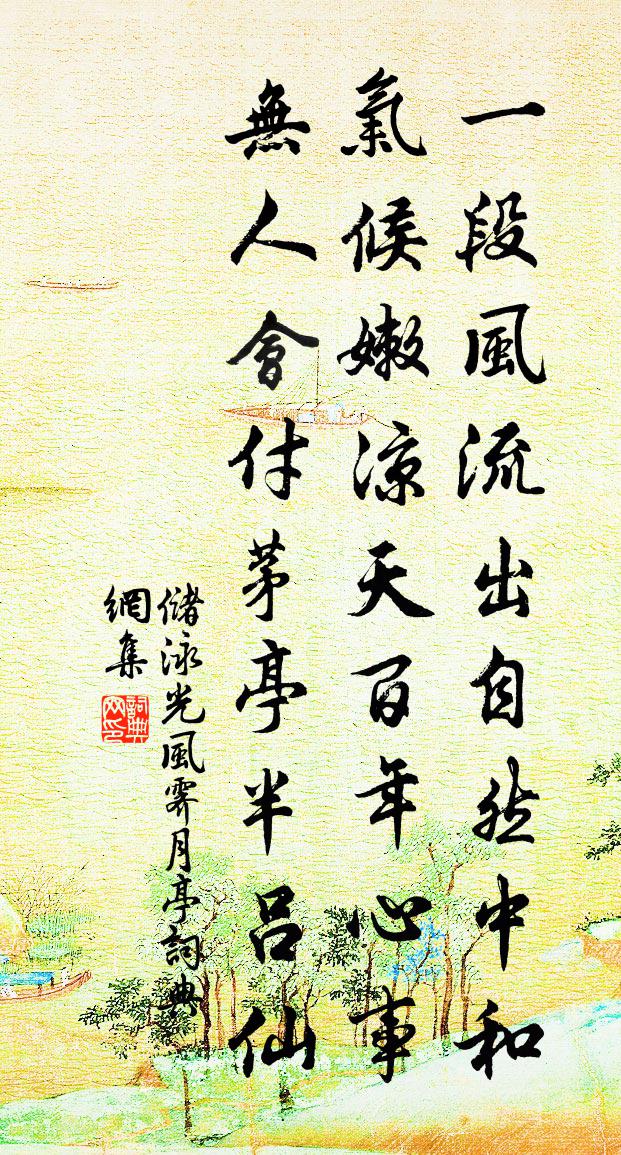 一段風流出自然中和
氣候嫩涼天百年心事
無人會付茅亭半呂仙
儲泳光風霽月亭詞典
網集
詞典網印